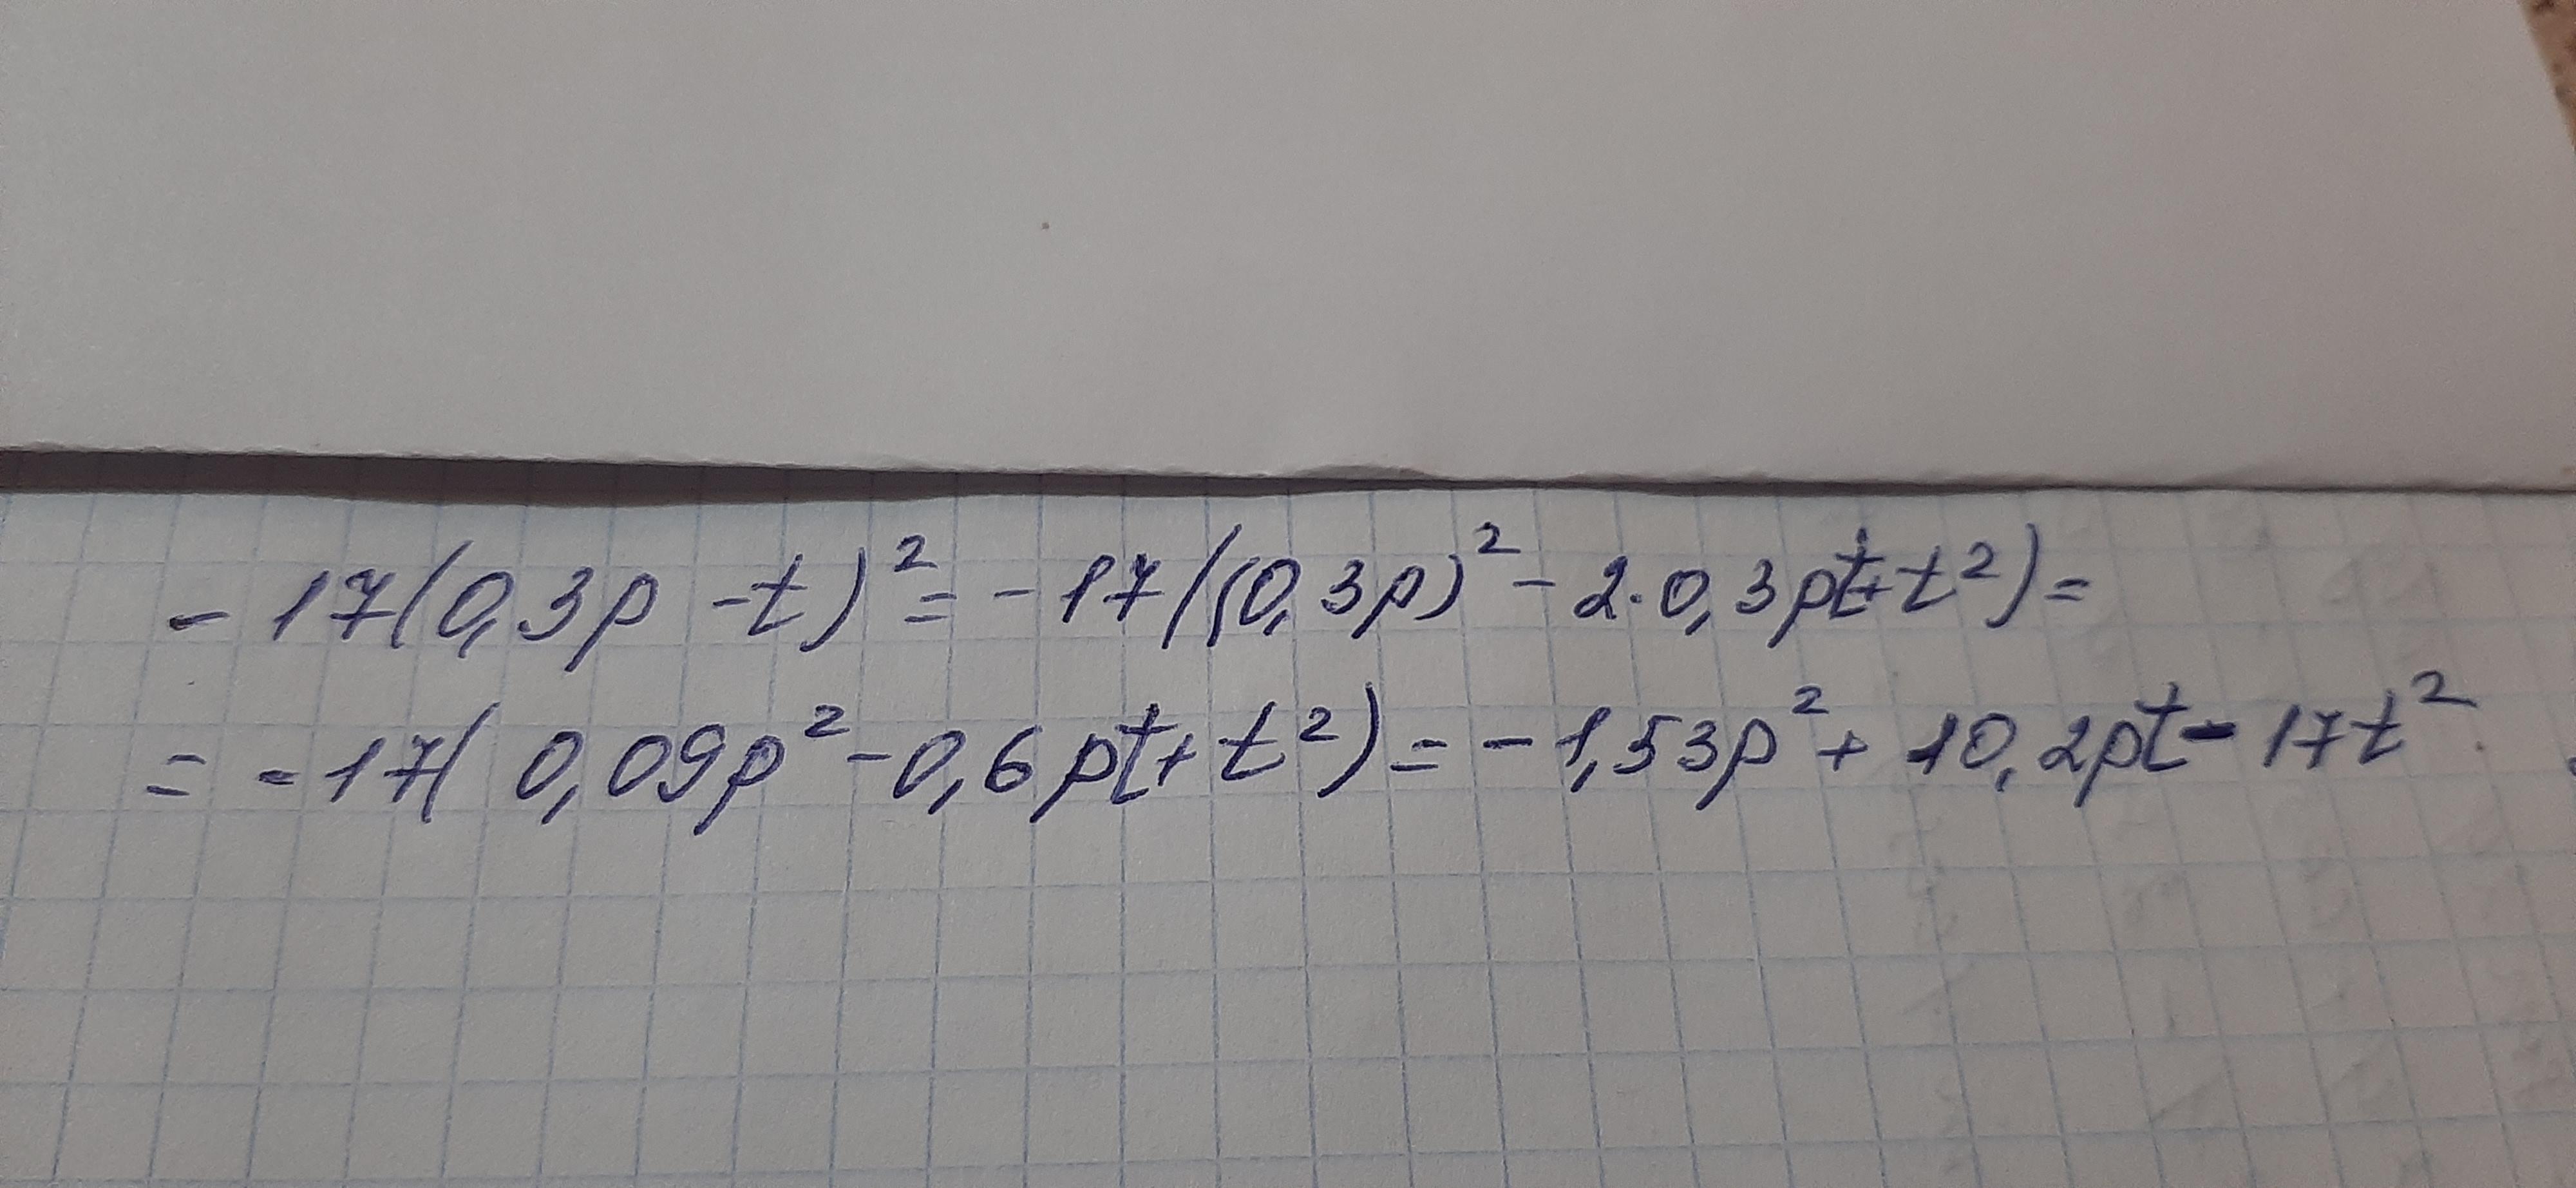 - 17(0,3p - t)² = - 17((0,3p)² - 2·0,3pt + t²) =
= - 17(0,09p² - 0,6pt + t²) = - 1,53p² + 10,2pt - 17t²